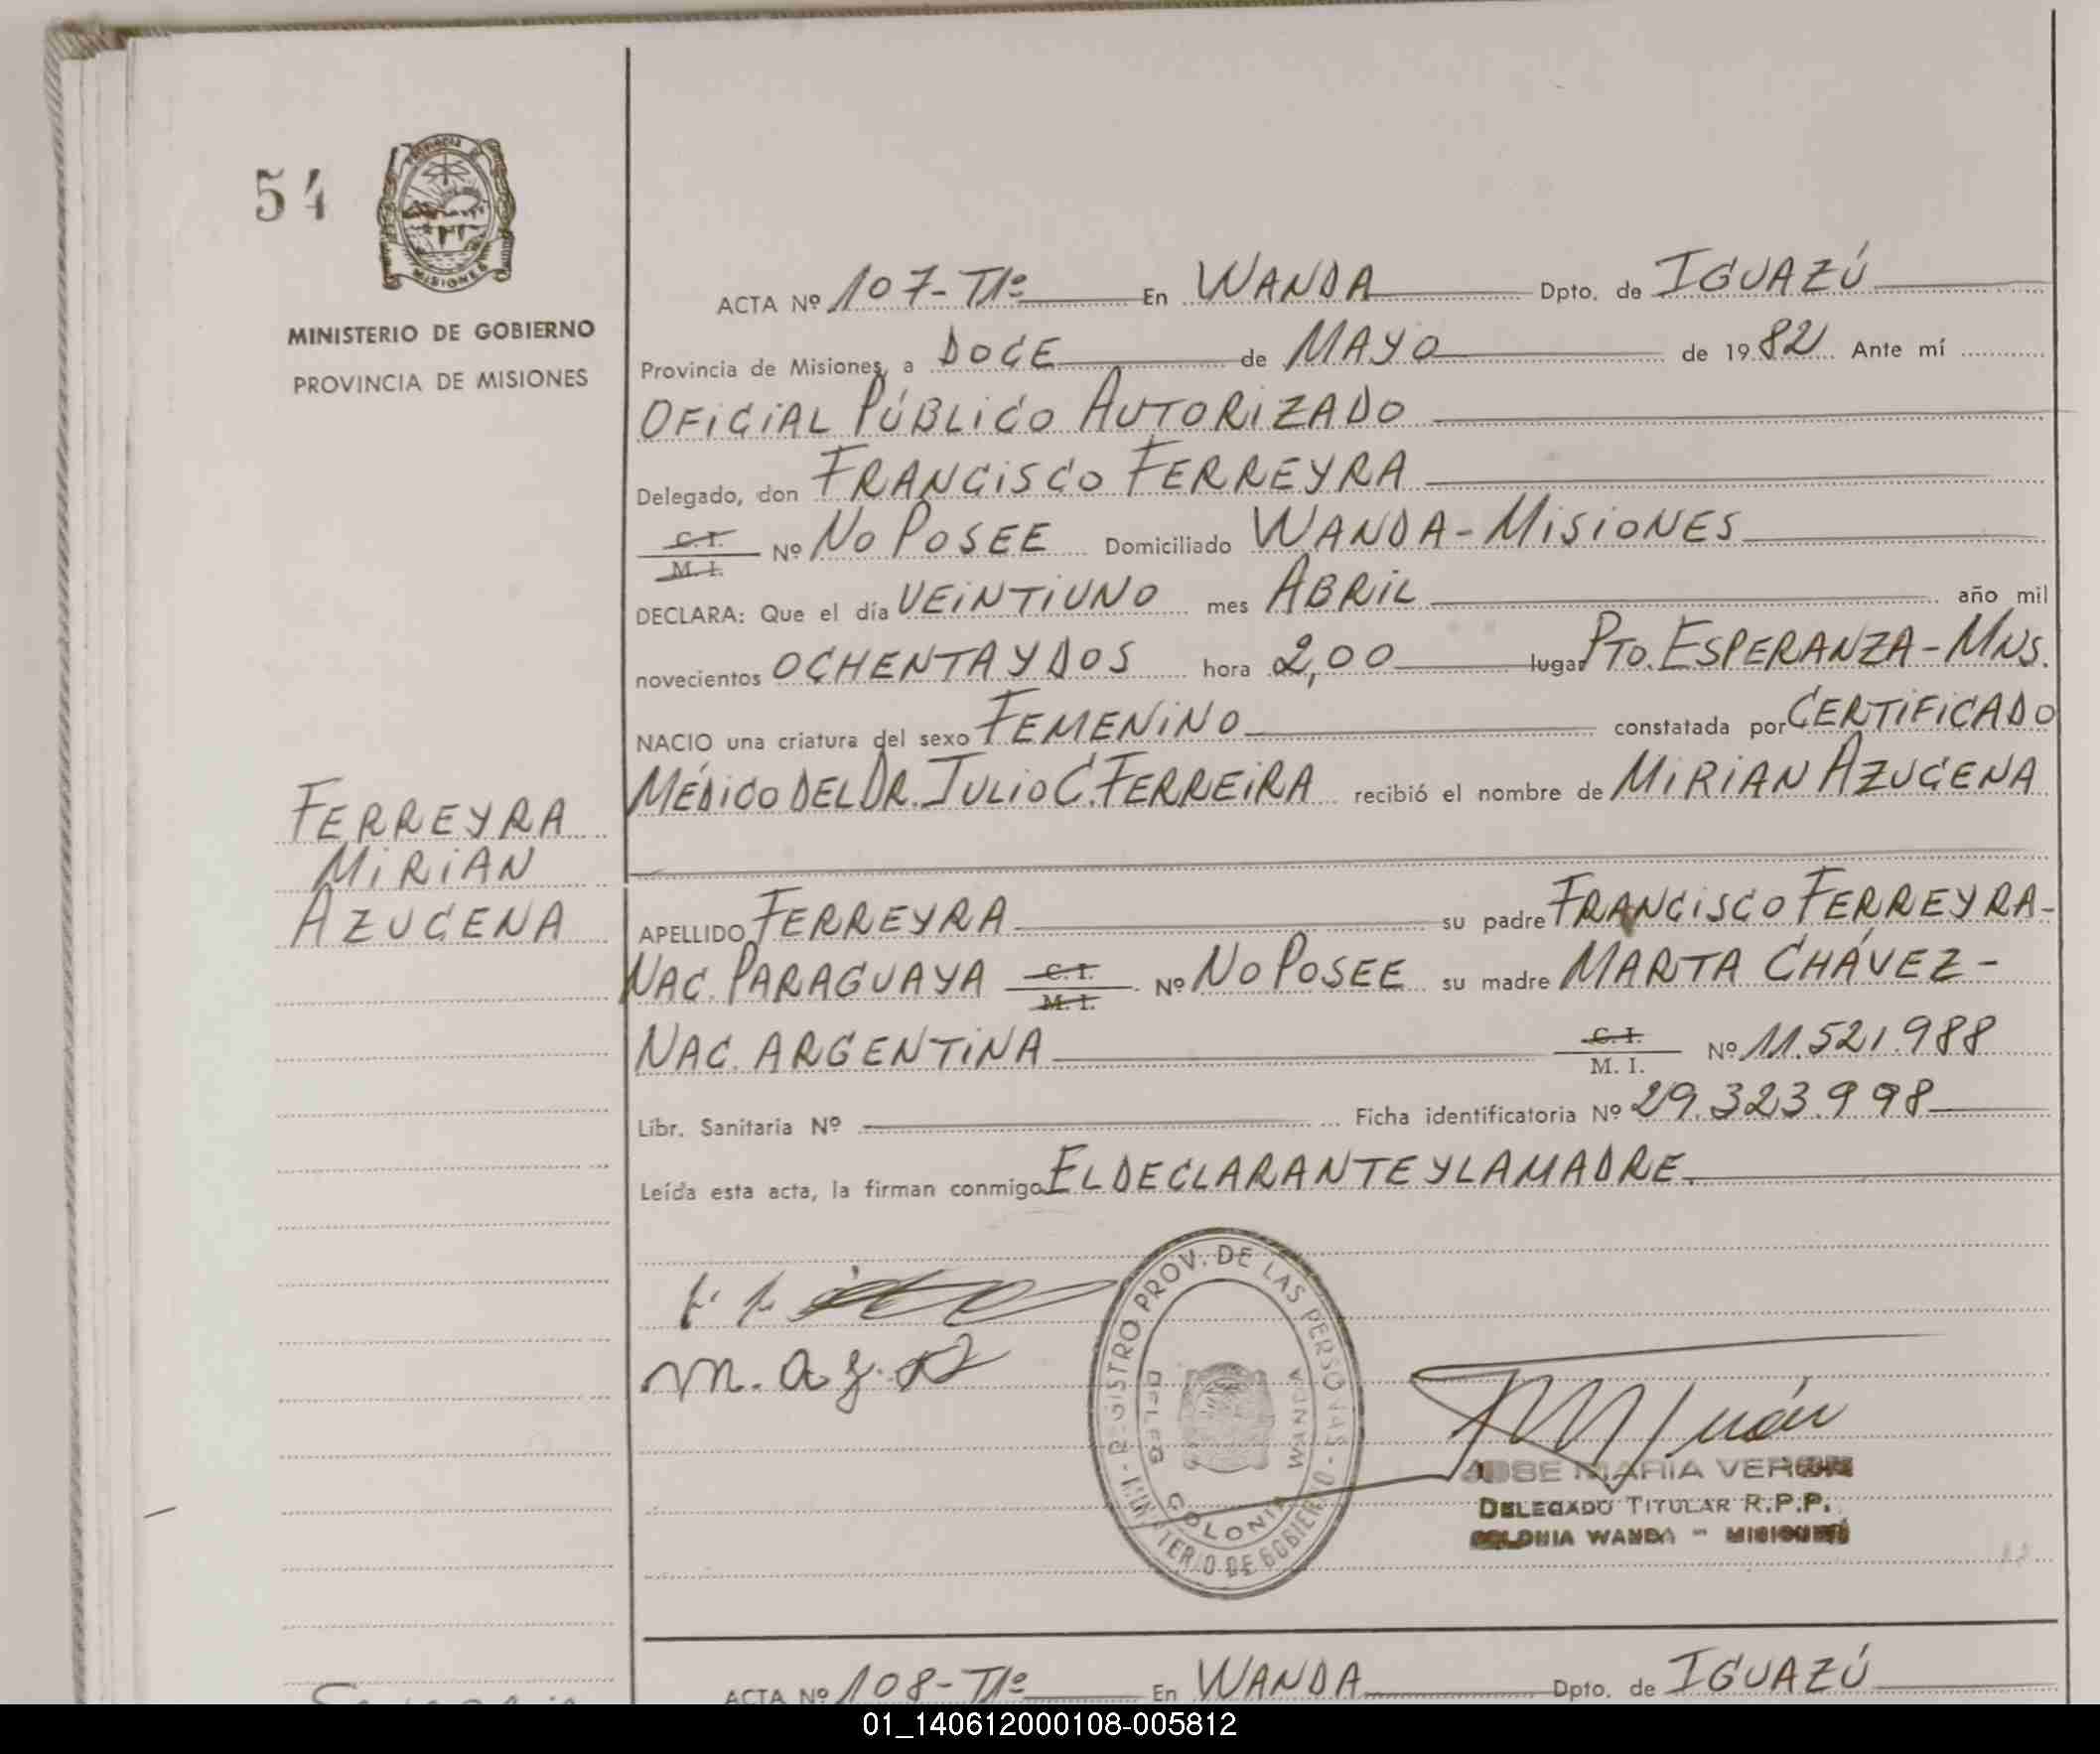 54
PROVINCIA
MISIONES
MINISTERIO DE GOBIERNO
PROVINCIA DE MISIONES
FERREYRA
MIRIAN
AZUCENA
ACTA Nº 107-T1º En WANDA Dpto. de IGUAZÚ
Provincia de Misiones, a DOCE de MAYO de 1982 Ante mí
OFICIAL PÚBLICO AUTORIZADO
Delegado, don FRANCISCO FERREYRA
C. I.
M. I.
Nº NO POSEE Domiciliado WANDA-MISIONES
DECLARA: Que el día VEINTIUNO mes ABRIL año mil
novecientos OCHENTA Y DOS hora 2,00 lugar PTO. ESPERANZA-MNS.
NACIO una criatura del sexo FEMENINO constatada por CERTIFICADO
MÉDICO DEL DR. JULIO C. FERREIRA recibió el nombre de MIRIAN AZUCENA
APELLIDO FERREYRA su padre FRANCISCO FERREYRA-
NAC. PARAGUAYA C. I. M. I. Nº NO POSEE su madre MARTA CHÁVEZ-
NAC. ARGENTINA C. I. M. I. Nº 11.521.988
Libr. Sanitaria Nº Ficha identificatoria Nº 29.323.998
Leída esta acta, la firman conmigo EL DECLARANTE Y LA MADRE.
REGISTRO PROV. DE LAS PERSONAS - MINISTERIO DE GOBIERNO
DELEG COLONIA WANDA
JOSE MARIA VERON
DELEGADO TITULAR R.P.P.
COLONIA WANDA - MISIONES
ACTA Nº 108-T1º En WANDA Dpto. de IGUAZÚ
01_140612000108-005812